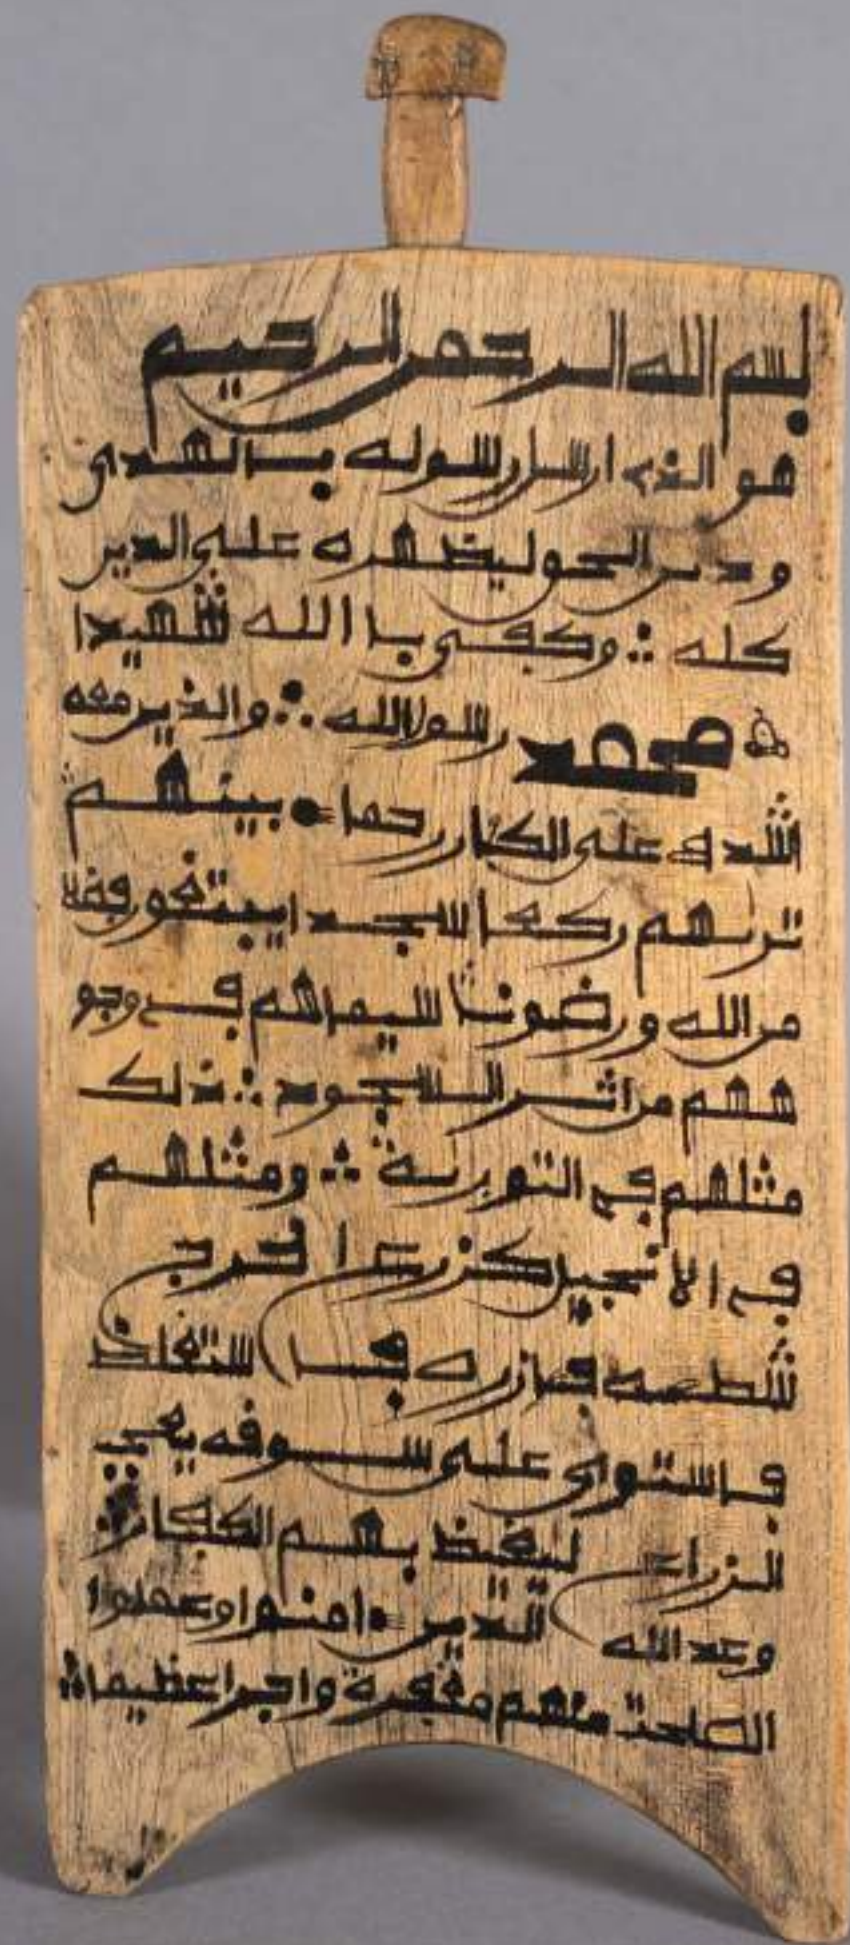 بسم الله الرحمن الرحيم
هو الذي ارسل رسوله بالهدى
ودين الحق ليضهره على الدين
كله وكفى باالله شهيدا
محمد رسول الله والذين معه
اشده على الكفار رحماء بينهم
تريهم ركعا سجدا يبتغون فضلا
من الله ورضونا سيماهم في وجو
ههم من اثر السجود ذلك
مثلهم في التورية ومثلهم
في الانجيل كزرع اخرج
شطعه فازره فاستغلذ
فاستوى على سوقه يعجب
الزراع ليغيذ بهم الكفار
وعد الله الذين ءامنوا وعملوا
الصلحت منهم مغفرة واجرا عظيما